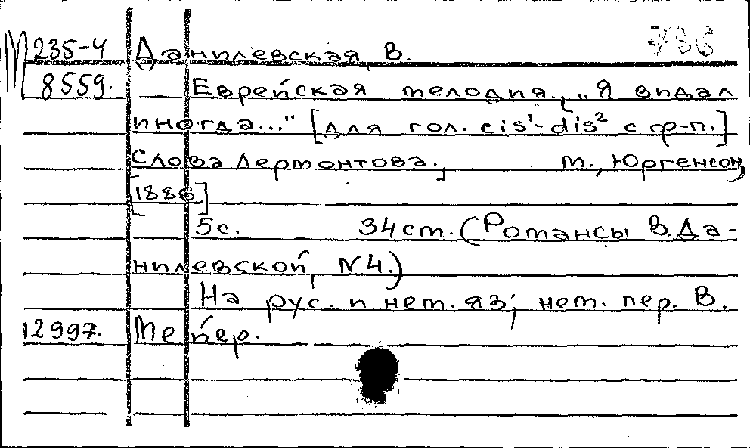 М 235-4 Данилевская, В.
8559. Еврейская мелодия. „Я видал
иногда..." [для гол. cis¹-dis² с ф-п.]
Слова Лермонтова. М., Юргенсон,
[1886]
5с. 34см. (Романсы В.Да-
нилевской, №4.)
На рус. и нем. яз; нем. пер. В.
12997. Мейер.